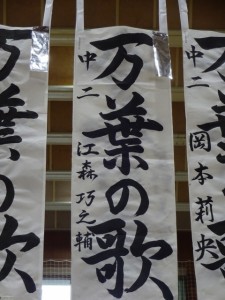 万葉の歌
中二
岡本莉央
万葉の歌
中二
江森巧之輔
万葉の歌